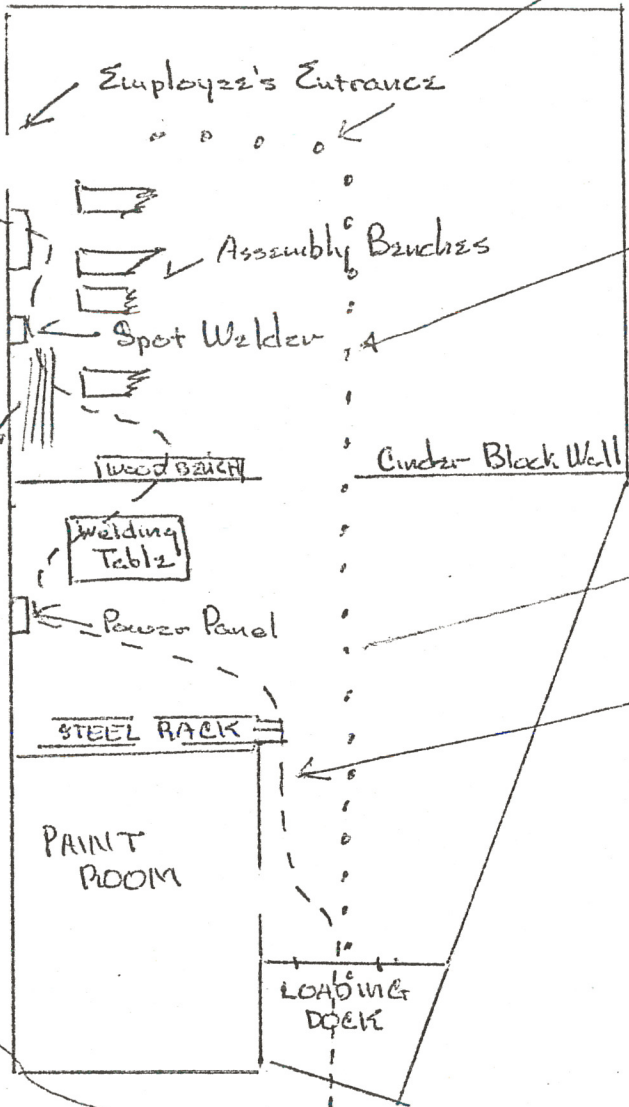 Employee's Entrance
Assembly Benches
Spot Welder
WOOD BENCH
Cinder Block Wall
Welding
Table
Power Panel
STEEL RACK
PAINT
ROOM
LOADING
DOCK